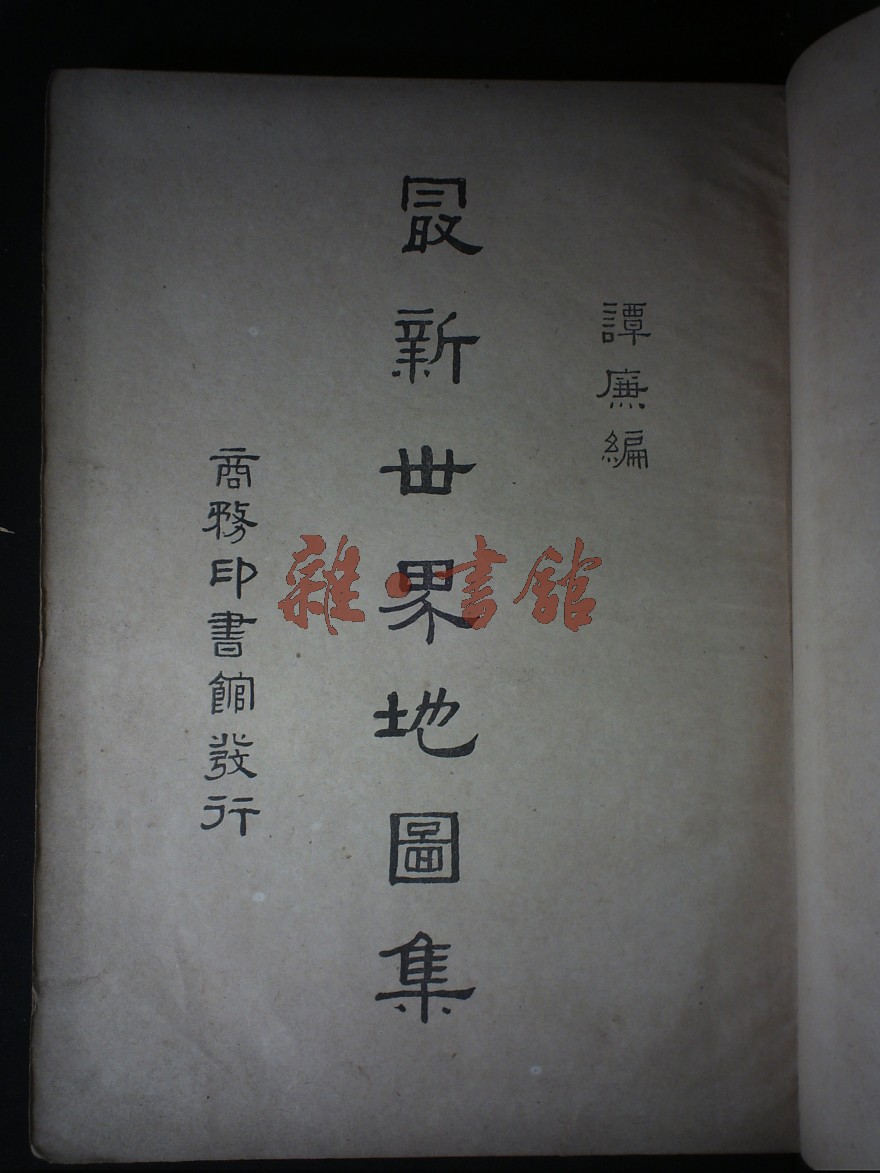 譚廉編
最新世界地圖集
商務印書館發行
雜·書館